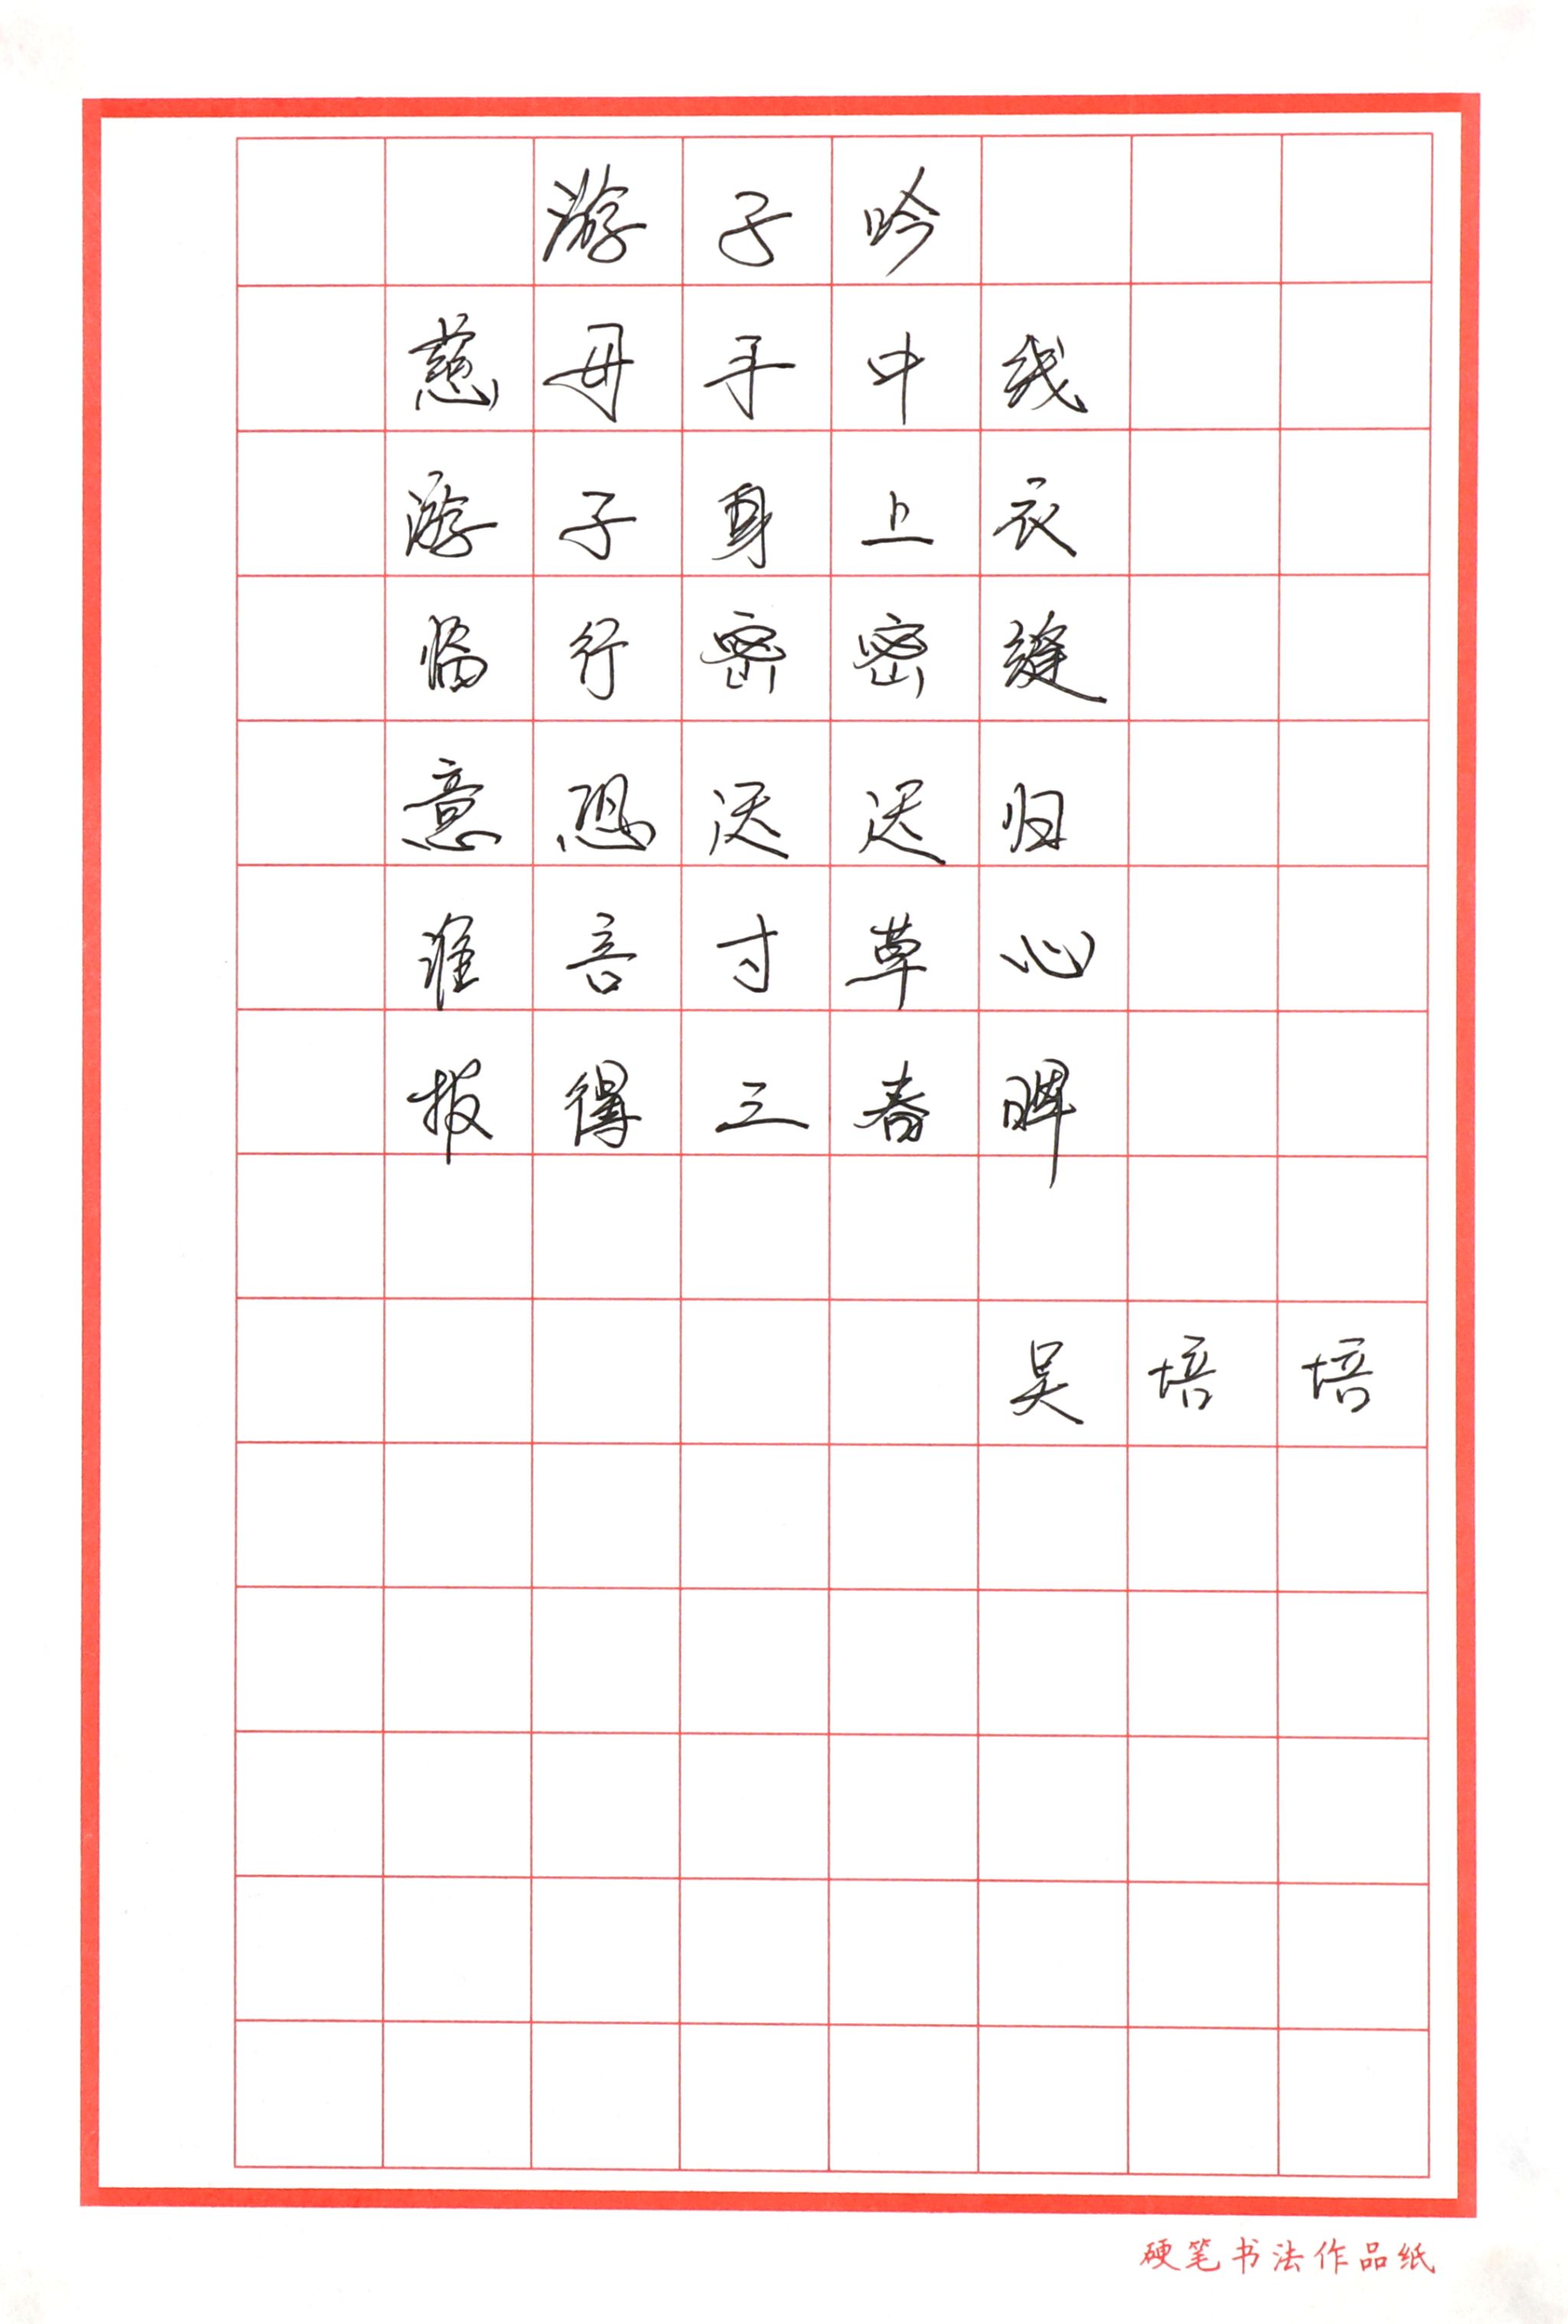 游子吟
慈母手中线
游子身上衣
临行密密缝
意恐迟迟归
谁言寸草心
报得三春晖
吴培培
硬笔书法作品纸